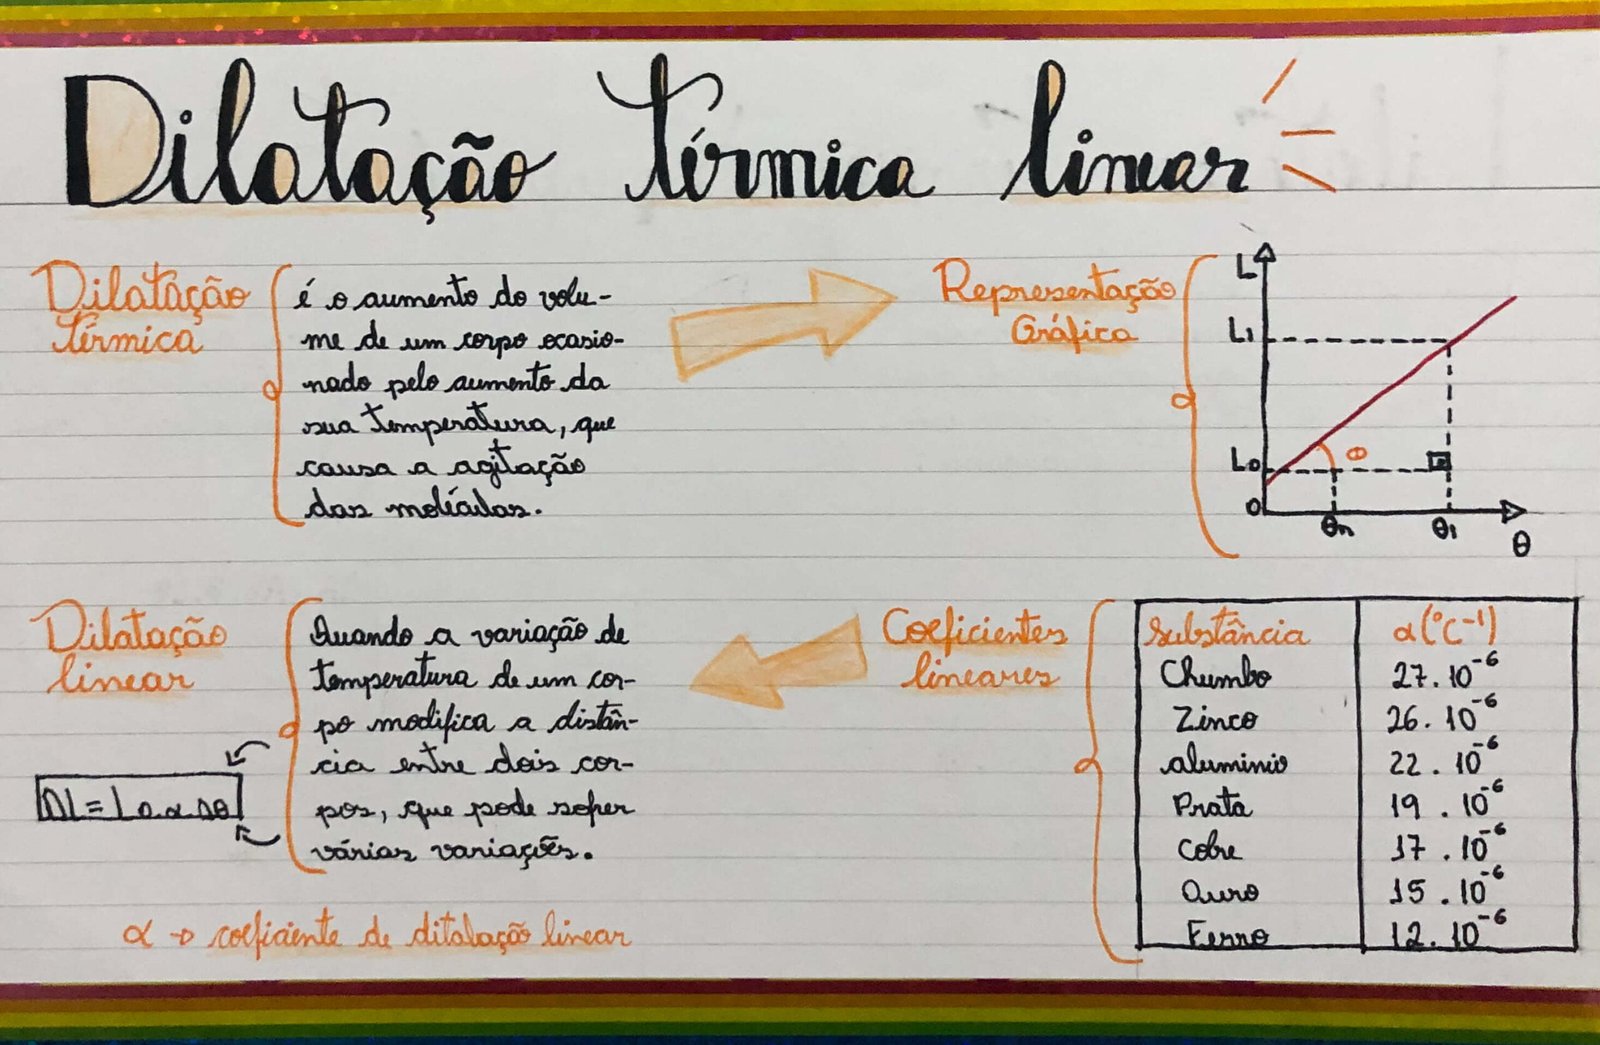 Dilatação térmica linear
Dilatação
térmica
é o aumento do volu-
me de um corpo ocasio-
nado pelo aumento da
sua temperatura, que
causa a agitação
das moléculas.
Representação
Gráfica
L
L1
L0
0
θ
θn
θ1
θ
Dilatação
linear
Quando a variação de
temperatura de um cor-
po modifica a distân-
cia entre dois cor-
pos, que pode sofrer
várias variações.
ΔL = L0.α.Δθ
α → coeficiente de ditalação linear
Coeficientes
lineares
Substância α(°C⁻¹)
Chumbo 27.10⁻⁶
Zinco 26.10⁻⁶
aluminio 22.10⁻⁶
Prata 19.10⁻⁶
Cobre 17.10⁻⁶
Ouro 15.10⁻⁶
Ferro 12.10⁻⁶